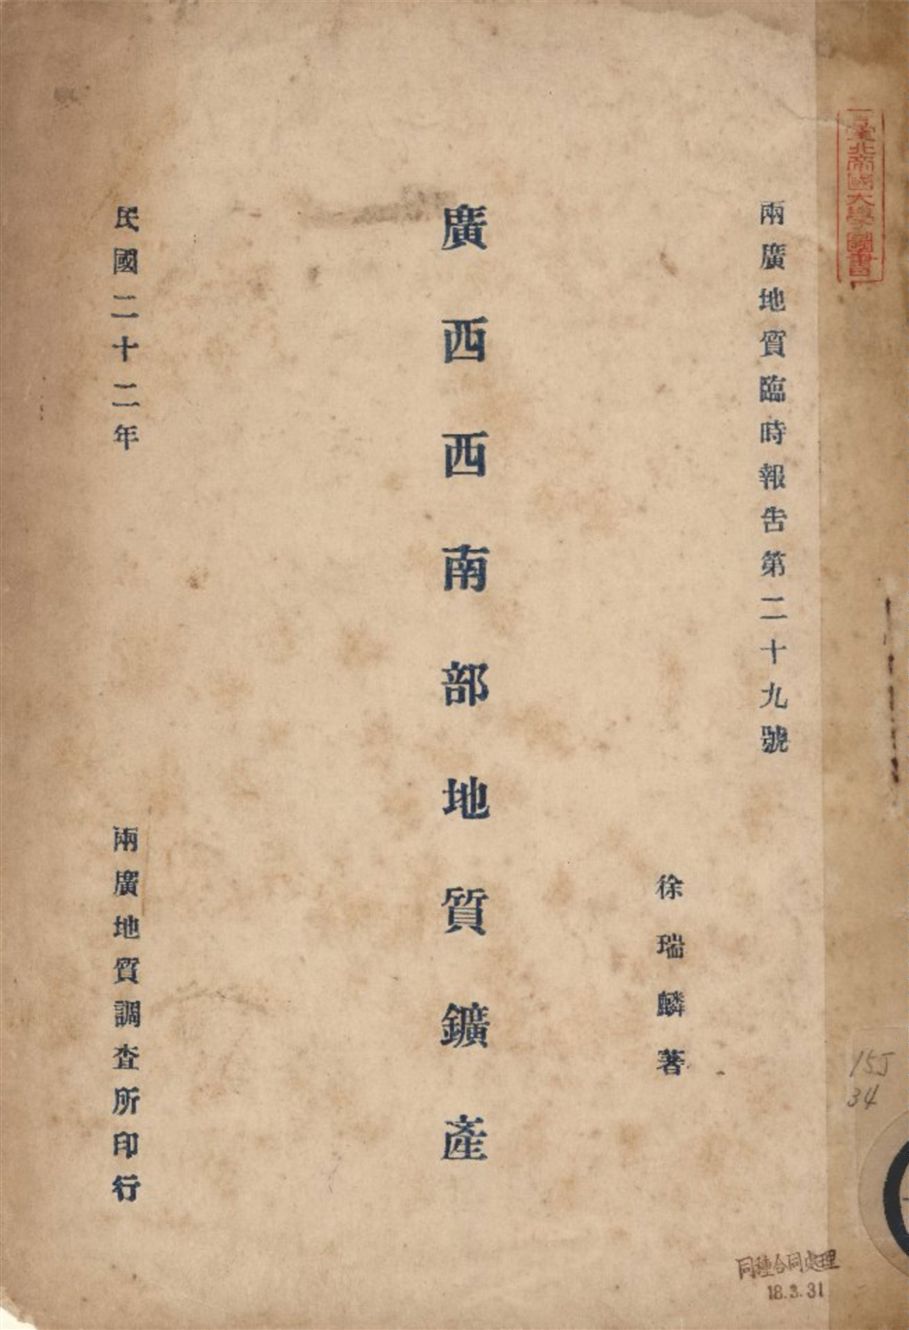 臺北帝國大學圖書
兩廣地質臨時報告第二十九號
徐瑞麟著
廣西西南部地質鑛產
民國二十二年
兩廣地質調查所印行
15J
34
同種合同處理
18.3.31